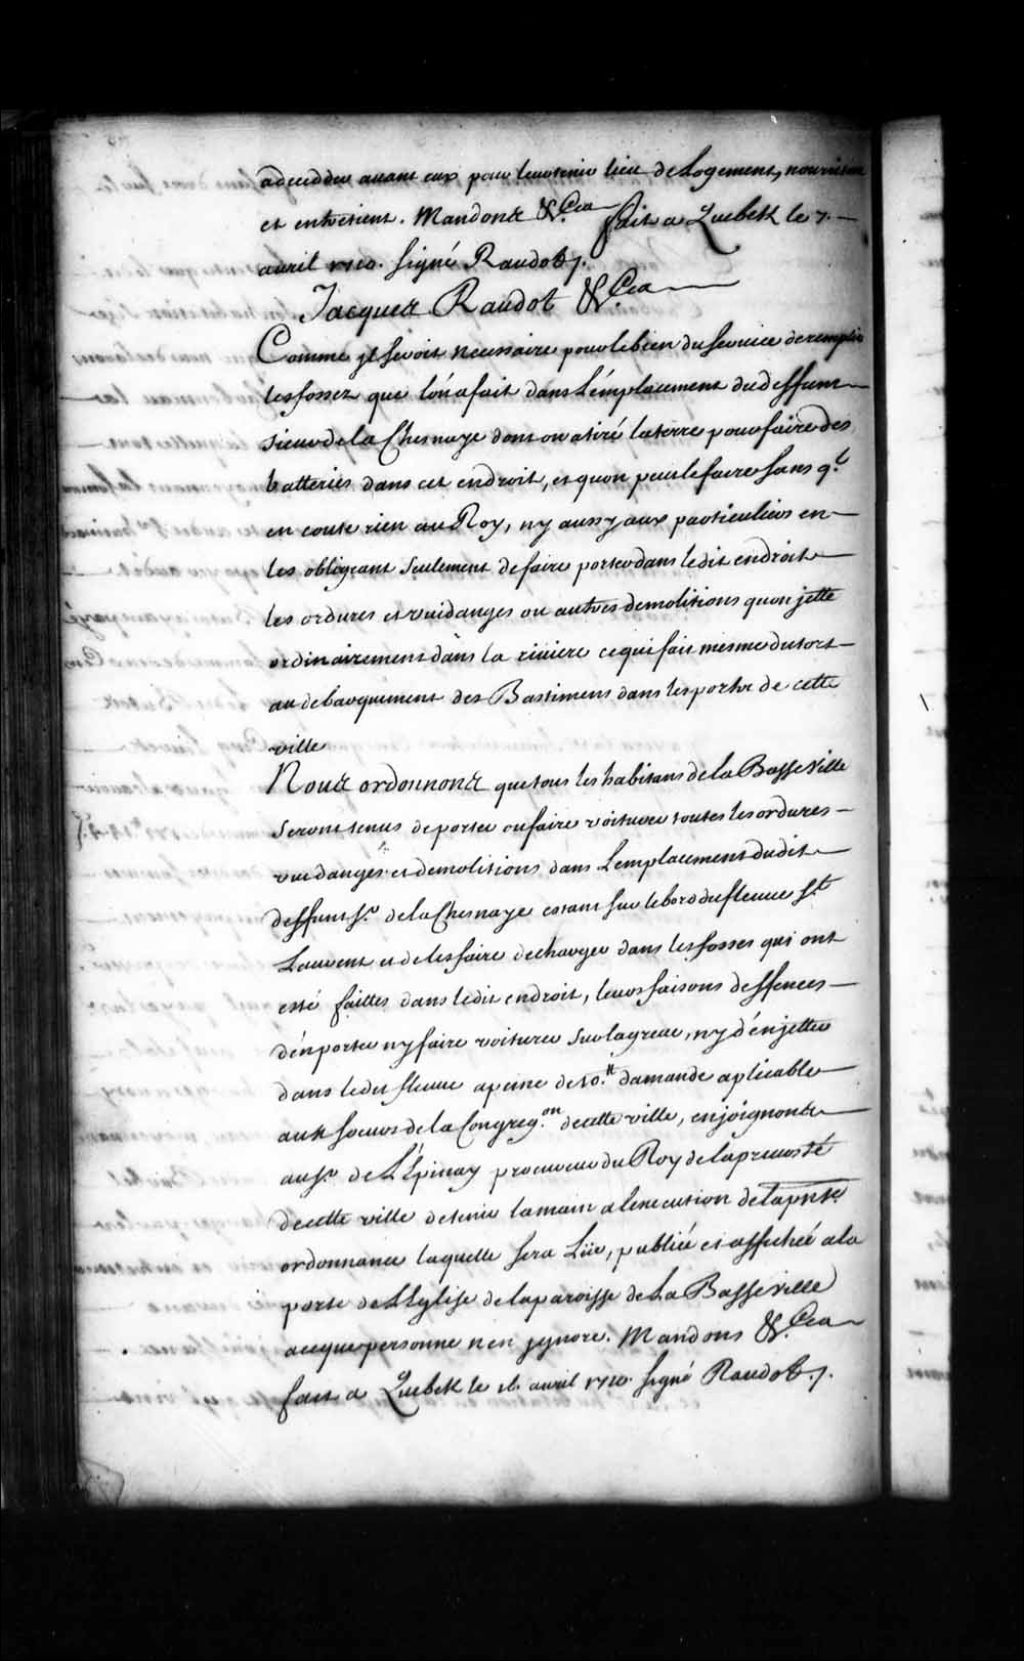 adecedder auant eux pour leur tenir lieu de Logement, nourriture
et entretient. Mandons &.Cra fait a Quebek le 7.
auril 1710. signé Raudot ./.
Jacques Raudot &.Cra
Comme jl seroit necessaire pour le bien du seruice de remplir
les fossez que l'on a fait dans L'emplacement du deffunt
sieur de la Chesnaye dont on a tiré la terre pour faire des
batteries dans cet endroit, et quon peut le faire sans q.l
en coute rien au Roy, ny aussy aux particuliers en
les obligeant seulement de faire porter dans ledit endroit
les ordures et vuidanges ou autres demolitions quon jette
ordinairement dans la riuiere ce qui fait mesme du tort
au debarquement des Bastimens dans les ports de cette
ville
Nous ordonnons que tous les habitans de la Basse Ville
seront tenus de porter ou faire voiturer toutes les ordures
vuidanges et demolitions dans L'emplacement dudit
deffunt s.r de la Chesnaye estant sur le bord du fleuue S.t
Laurent et de les faire decharger dans les fosses qui ont
esté faittes dans ledit endroit, leurs faisons deffences
d'en porter ny faire voiturer sur la greue, ny d'en jetter
dans ledit fleuue a peine de 10.lt damande aplicable
aux soeurs de la Congreg.on de cette ville, enjoignons
au s.r de L'Epinay procureur du Roy de la preuosté
de cette ville de tenir la main a l'execution de la pnte
ordonnance laquelle sera Lüe, publiée et affichée a la
porte de L'Eglise de la paroisse de La Basse ville
aceque personne nen jgnore. Mandons &.Cra
fait a Quebek le 16. auril 1710. signé Raudot ./.